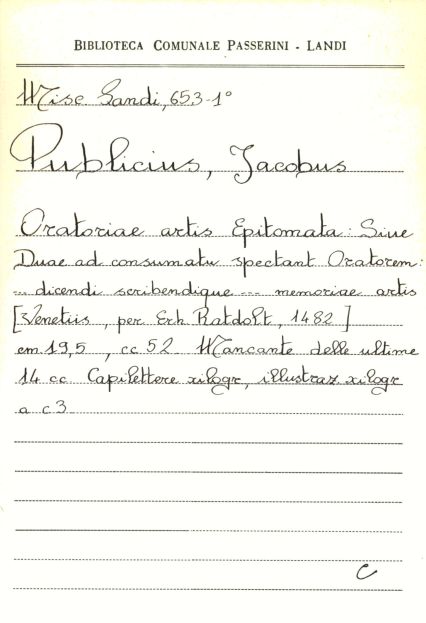 BIBLIOTECA COMUNALE PASSERINI - LANDI
Misc. Landi, 653-1°
Publicius, Jacobus
Oratoriae artis Epitomata: Siue
Duae ad consumatu spectant Oratorem:
... dicendi scribendique --- memoriae artis
[Venetiis, per Erh Ratdolt, 1482]
cm 19,5, cc 52 Mancante delle ultime
14 cc. Capilettere xilogr, illustraz. xilogr
a c 3
C